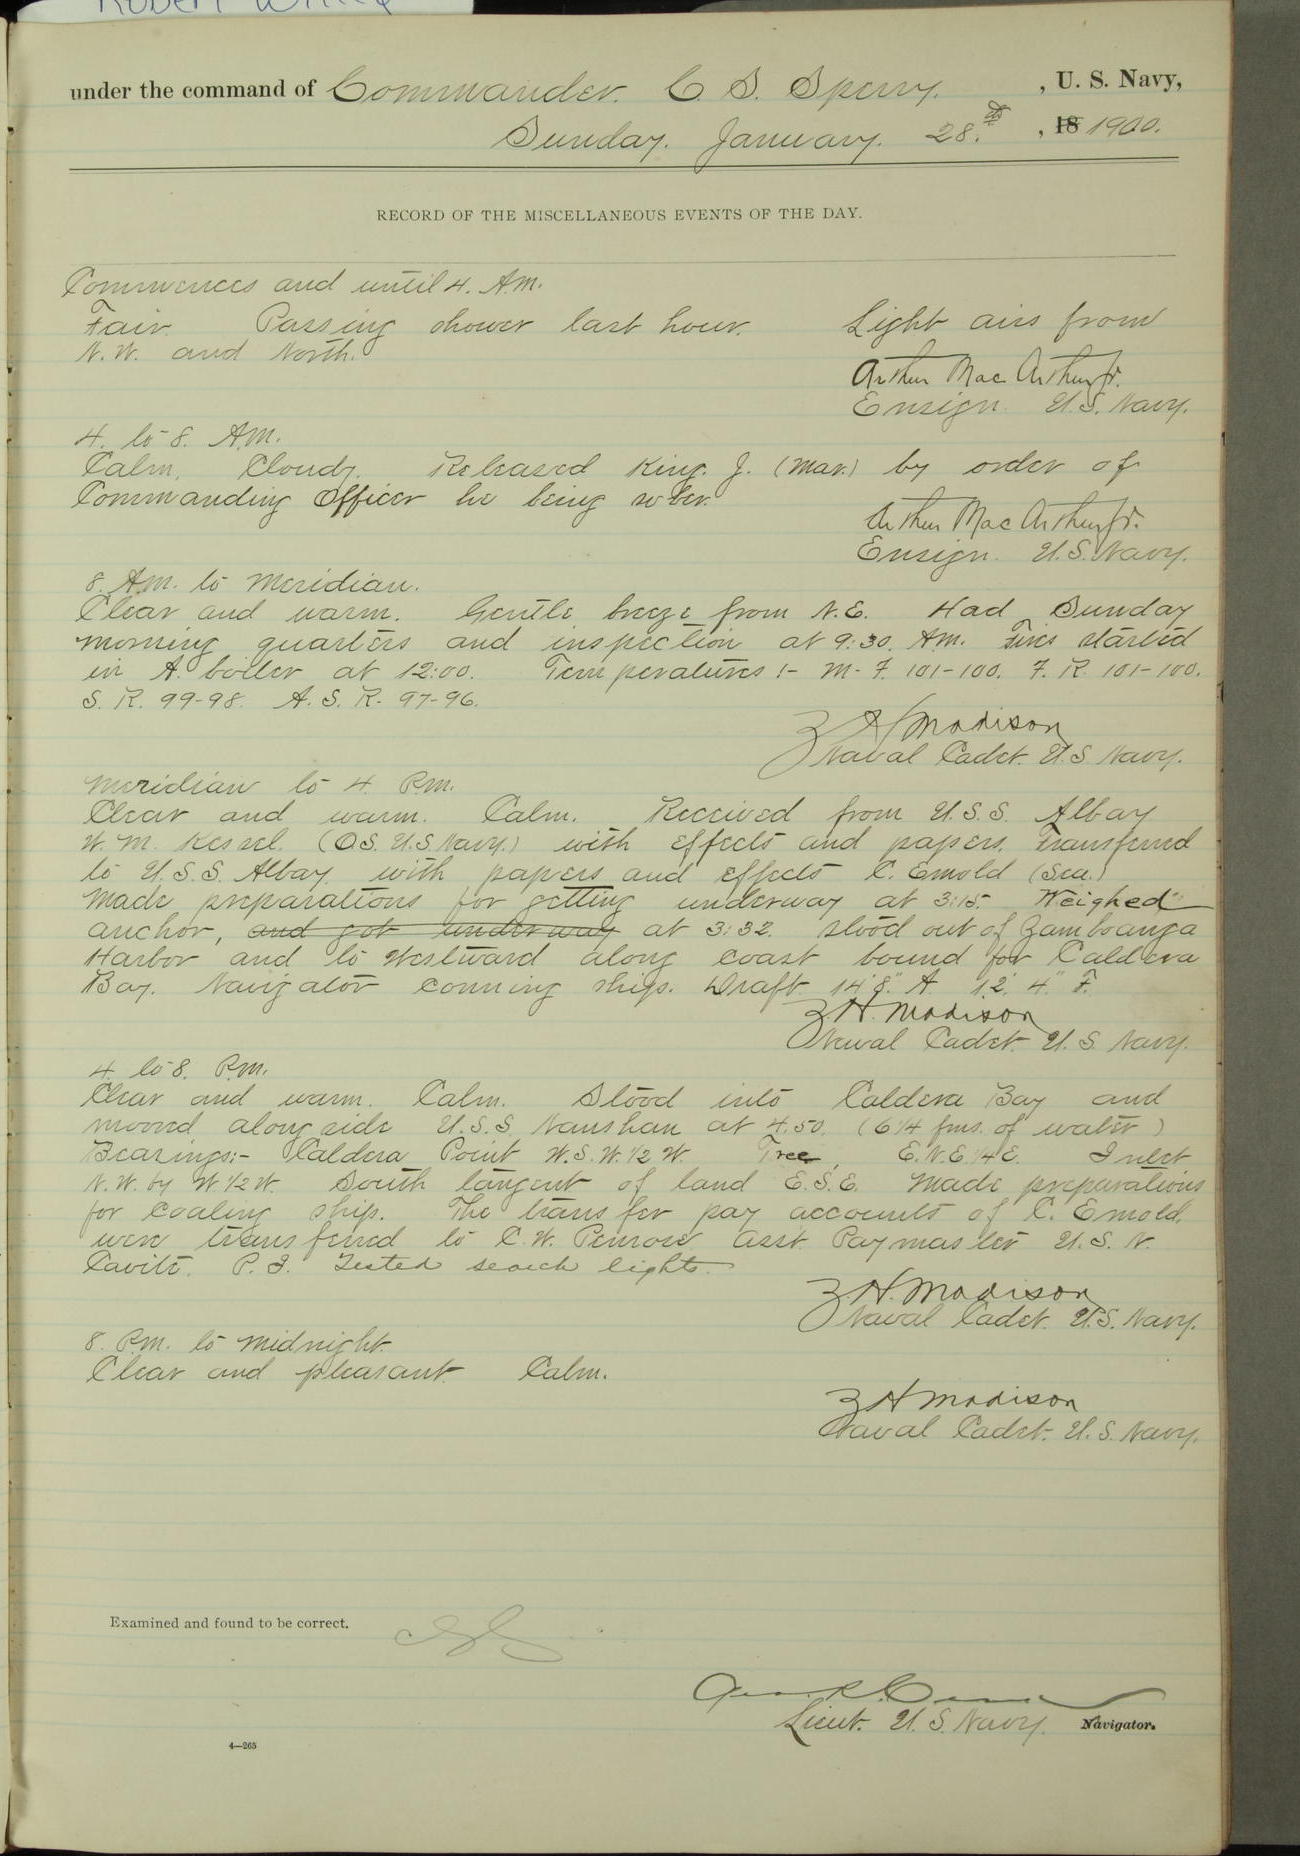 under the command of Commander. C. S. Sperry. , U. S. Navy,
Sunday. January. 28.th , 18 1900.
RECORD OF THE MISCELLANEOUS EVENTS OF THE DAY.
Commences and until 4. A.M.
Fair. Passing shower last hour. Light airs from
N.W. and North.
Arthur MacArthur Jr.
Ensign. U.S. Navy.
4. to 8. A.M.
Calm, Cloudy. Released King. J. (Mar.) by order of
Commanding Officer he being sober.
Arthur MacArthur Jr.
Ensign. U.S. Navy.
8. A.M. to Meridian.
Clear and warm. Gentle breeze from N.E. Had Sunday
morning quarters and inspection at 9:30. A.M. Fires started
in A. boiler at 12:00. Temperatures :- M-F. 101-100. F.R. 101-100.
S.R. 99-98. A.S.R. 97-96.
Z H Madison
Naval Cadet. U.S. Navy.
Meridian to 4 P.M.
Clear and warm. Calm. Received from U.S.S. Albay
W.M. Kessel. (O.S. U.S. Navy.) with effects and papers. Transferred
to U.S.S. Albay with papers and effects C. Emold (Sea.)
Made preparations for getting underway at 3:15. Weighed
anchor, and got underway at 3:32. Stood out of Zamboanga
Harbor and to Westward along coast bound for Caldera
Bay. Navigator conning ship. Draft. 14' 8" A. 12' 4" F.
Z. H. Madison
Naval Cadet. U.S. Navy.
4. to 8. P.M.
Clear and warm. Calm. Stood into Caldera Bay and
moored along side U.S.S. Nanshan at 4.50. (6 1/4 fms. of water)
Bearings:- Caldera Point W.S.W. 1/2 W. Tree, E.N.E. 1/4 E. Inlet
N.W. by W. 1/2 W. South tangent of land E.S.E. Made preparations
for coaling ship. The transfer pay accounts of C. Emold.
were transferred to C.W. Penrose Asst. Paymaster U.S.N.
Cavite. P.I. Tested search lights.
Z. H. Madison
Naval Cadet. U.S. Navy.
8. P.M. to Midnight.
Clear and pleasant. Calm.
Z H Madison
Naval Cadet. U.S. Navy.
Examined and found to be correct.
Lieut. U.S. Navy. Navigator.
4—265